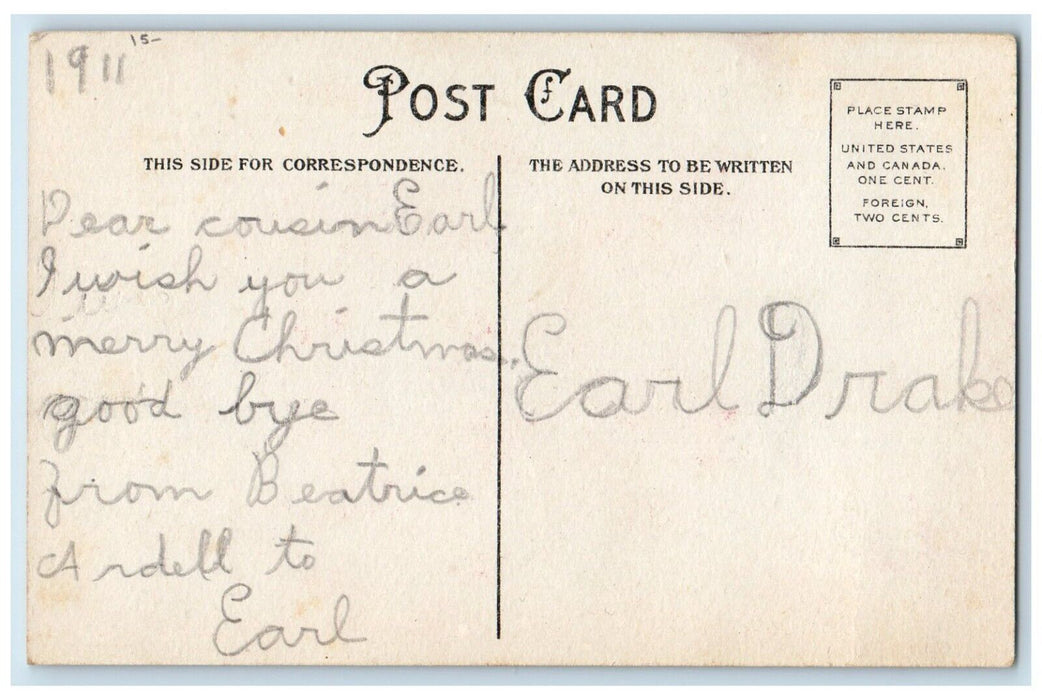 1911
15-
POST CARD
THIS SIDE FOR CORRESPONDENCE.
THE ADDRESS TO BE WRITTEN
ON THIS SIDE.
PLACE STAMP
HERE.
UNITED STATES
AND CANADA.
ONE CENT.
FOREIGN,
TWO CENTS.
Dear cousin Earl
I wish you a
merry Christmas.
good bye
from Beatrice
Ardell to
Earl
Earl Drake